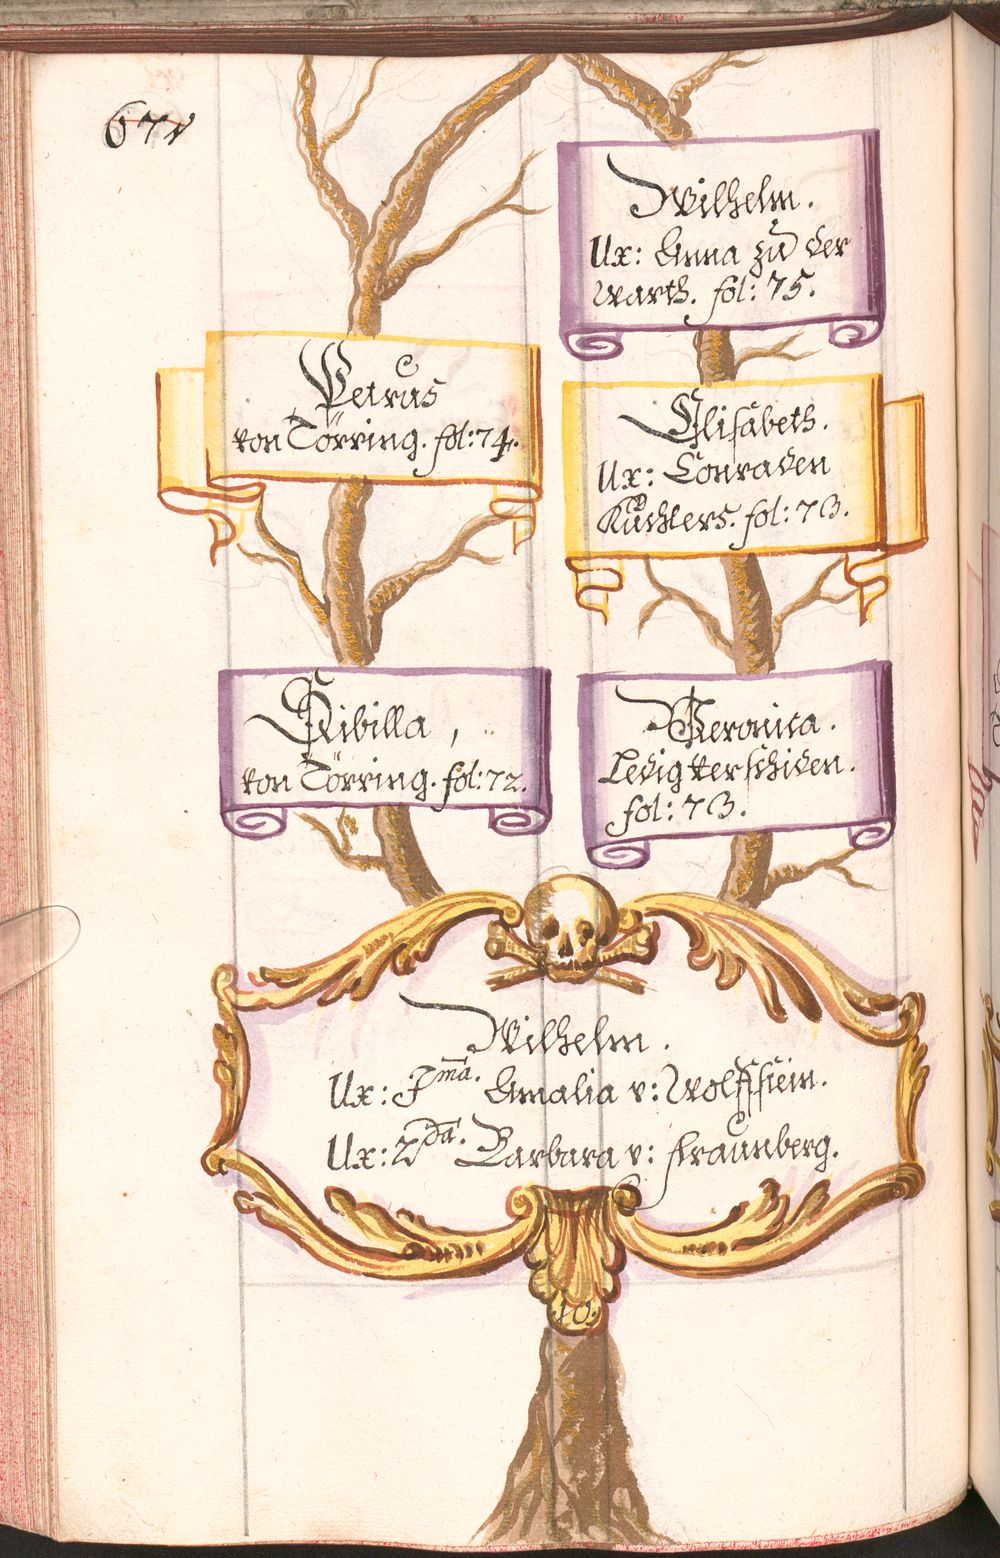 67v
Wilhelm.
Ux: Anna zu der
Warth. fol: 75.
Petrus
von Törring. fol: 74.
Elisabeth.
Ux: Conraden
Kuchlers. fol: 73.
Sibilla,
von Törring. fol: 72.
Veronica.
Ledig verschiden.
fol: 73.
Wilhelm.
Ux: I^ma. Amalia v: Wolffstein.
Ux: 2^da. Barbara v: Fraunberg.
10.